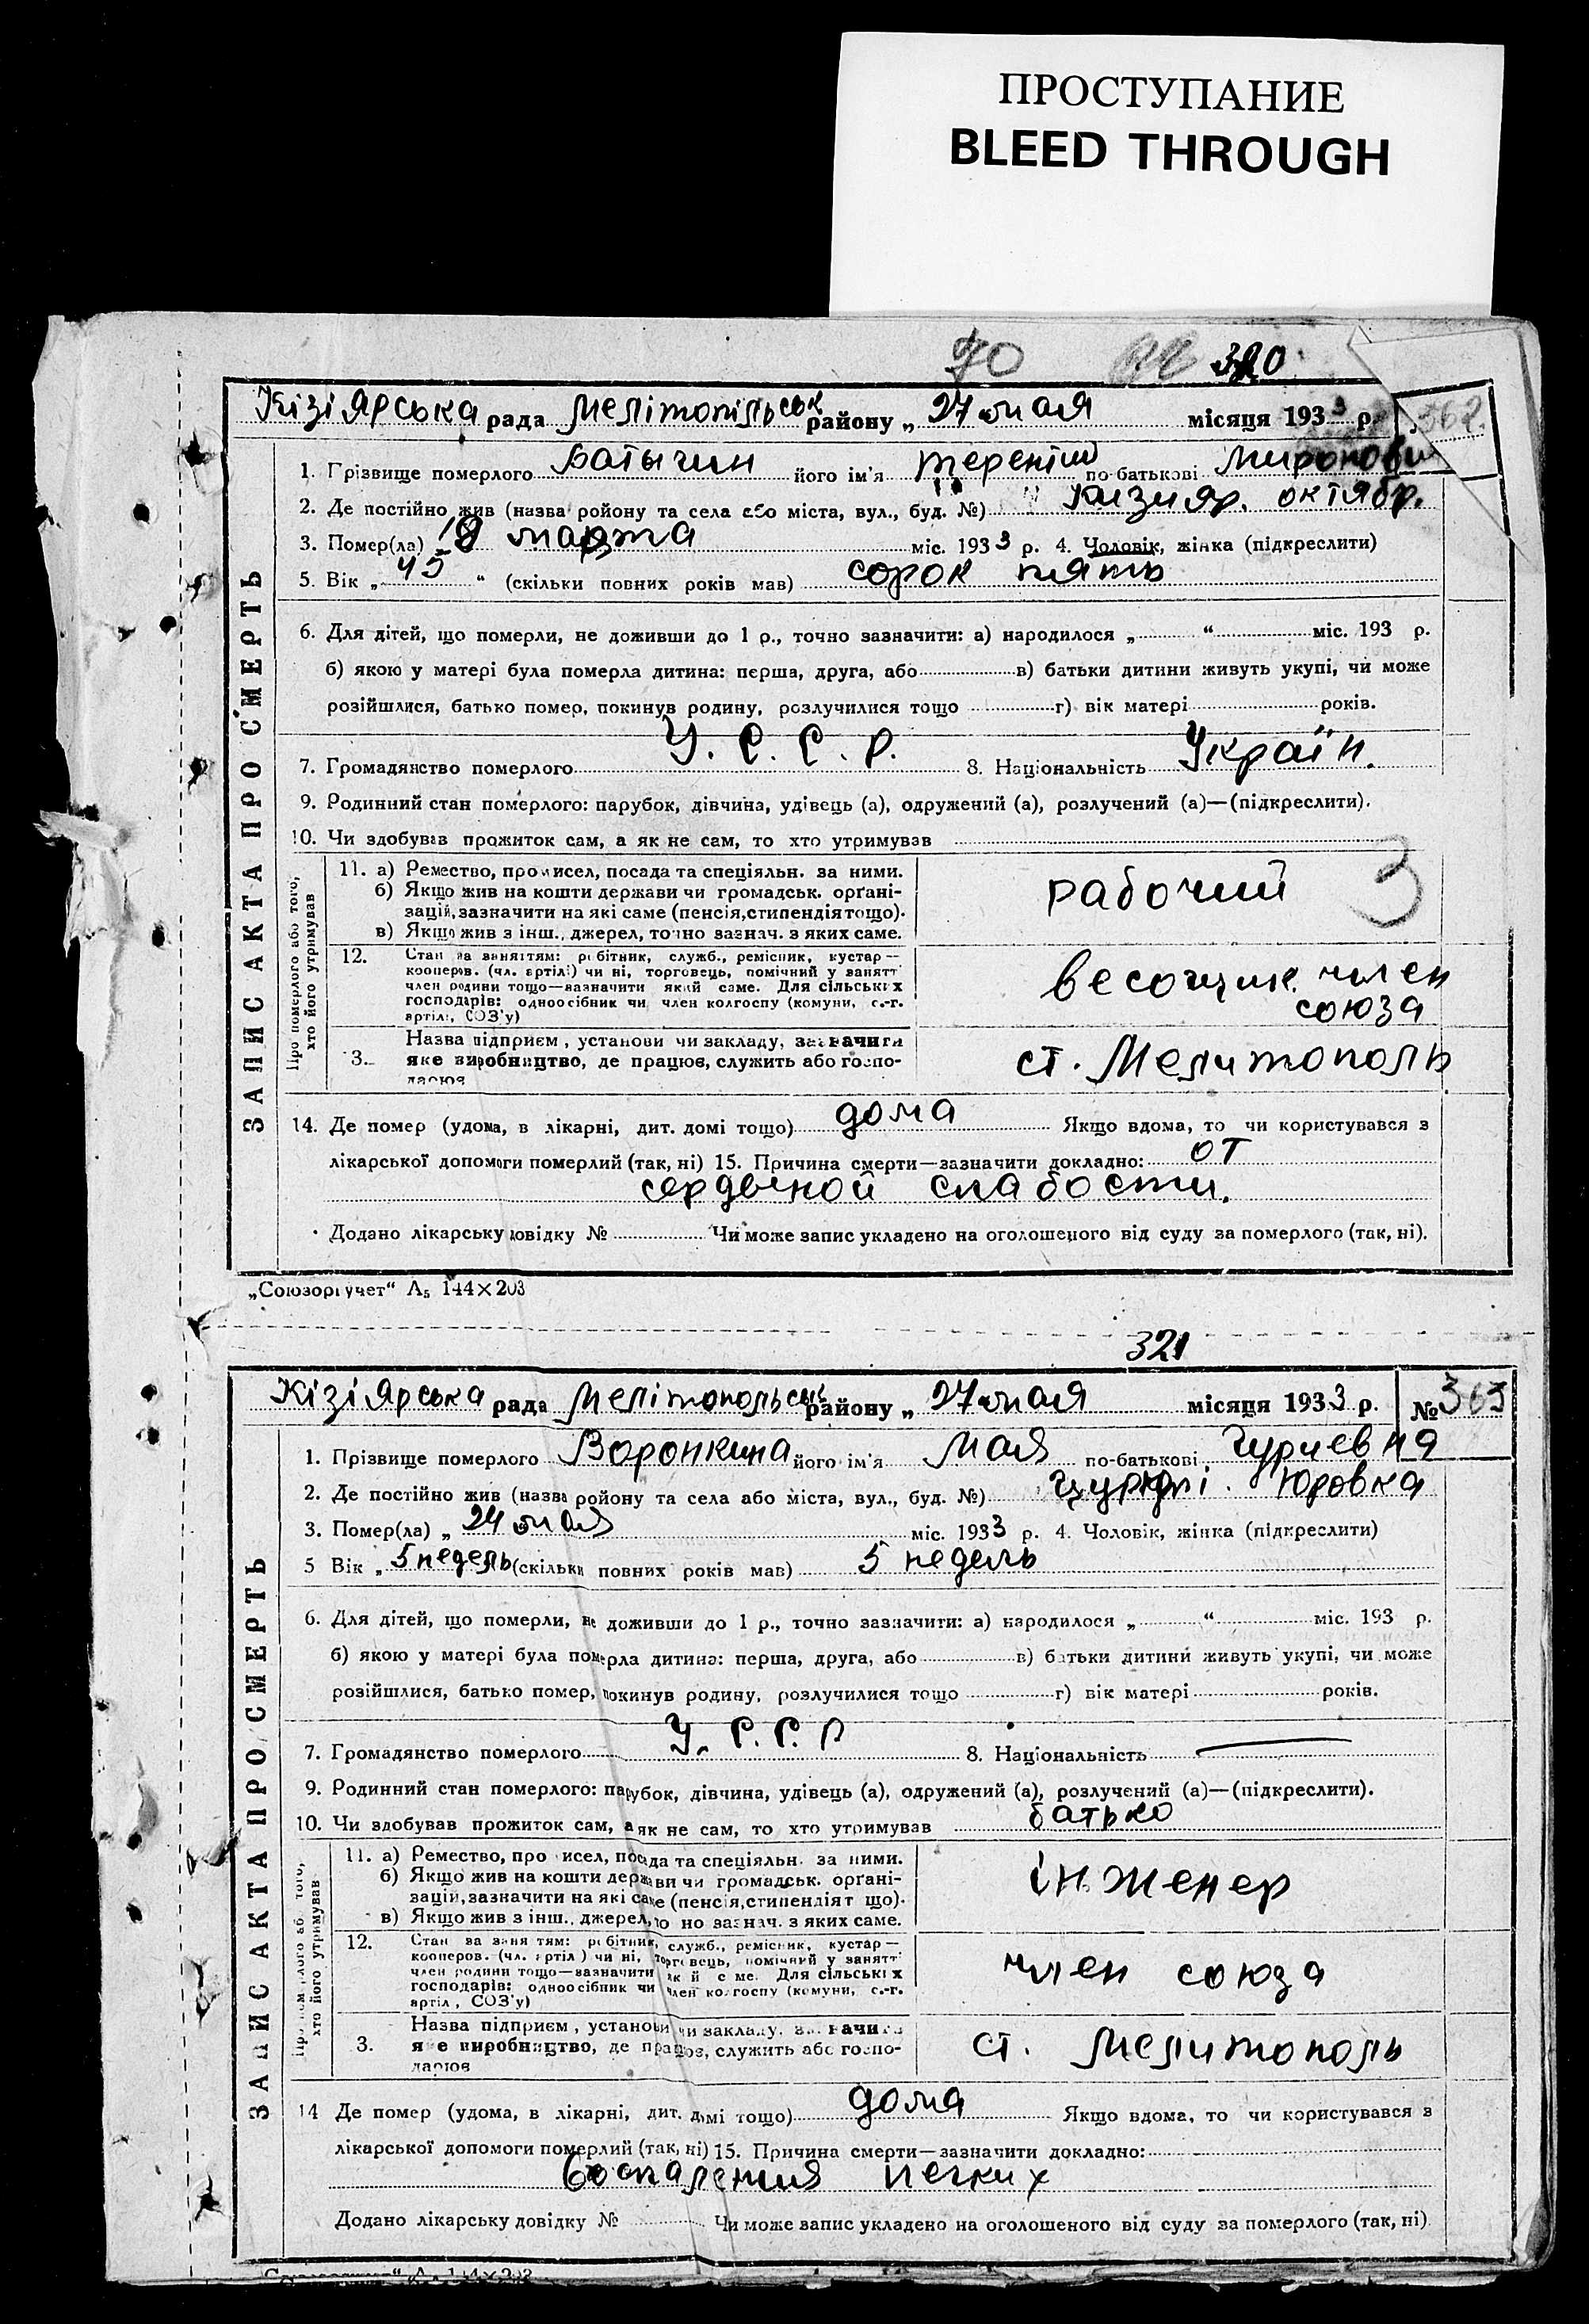 ПРОСТУПАНИЕ
BLEED THROUGH
70 320
Кізіярська рада Мелітопільськ району „ 27 мая місяця 1933 р. 362.
1. Прізвище померлого Батычин його ім'я Терентій по-батькові Миронови
2. Де постійно жив (назва району та села або міста, вул., буд. №) Кизияр. октябр.
3. Помер(ла) 18 марта міс. 1933 р. 4. Чоловік, жінка (підкреслити)
5. Вік „ 45 “ (скільки повних років мав) сорок пять
6. Для дітей, що померли, не доживши до 1 р., точно зазначити: а) народилося „ “ міс. 193 р.
б) якою у матері була померла дитина: перша, друга, або в) батьки дитини живуть укупі, чи може
розійшлися, батько помер, покинув родину, розлучилися тощо г) вік матері років.
7. Громадянство померлого У. С. С. Р. 8. Національність Україн.
9. Родинний стан померлого: парубок, дівчина, удівець (а), одружений (а), розлучений (а)—(підкреслити).
10. Чи здобував прожиток сам, а як не сам, то хто утримував
ЗАПИС АКТА ПРО СМЕРТЬ
Про померлого або того,
хто його утримував
11. а) Ремество, промисел, посада та спеціяльн. за ними.
б) Якщо жив на кошти держави чи громадськ. орґані-
зацій, зазначити на які саме (пенсія, стипендія тощо).
в) Якщо жив з інш., джерел, точно зазнач. з яких саме.
рабочий 3
12. Стан за заняттям: робітник, служб., ремісник, кустар—
кооперов. (чл. артілі) чи ні, торговець, помічний у занятт
член родини тощо—зазначити який саме. Для сільських
господарів: одноосібник чи член колгоспу (комуни, с.-г.
артілі, СОЗ'у)
весовщик. член
союза
3. Назва підприєм, установи чи закладу, зазначити
яке виробництво, де працює, служить або госпо-
дарює
ст. Мелитополь
14. Де помер (удома, в лікарні, дит. домі тощо) дома Якщо вдома, то чи користувався з
лікарської допомоги померлий (так, ні) 15. Причина смерти—зазначити докладно: от
сердечной слабости.
Додано лікарську довідку № Чи може запис укладено на оголошеного від суду за померлого (так, ні).
„Союзоргучет“ А₅ 144×203
321
Кізіярська рада Мелітопольськ району „ 27 мая місяця 1933 р. № 363
1. Прізвище померлого Воронкина його ім'я Мая по-батькові Гуриевна
2. Де постійно жив (назва району та села або міста, вул., буд. №) Юровка
3. Помер(ла) „ 24 мая міс. 1933 р. 4. Чоловік, жінка (підкреслити)
5 Вік „ 5 недель (скільки повних років мав) 5 недель
6. Для дітей, що померли, не доживши до 1 р., точно зазначити: а) народилося „ “ міс. 193 р.
б) якою у матері була померла дитина: перша, друга, або в) батьки дитини живуть укупі, чи може
розійшлися, батько помер, покинув родину, розлучилися тощо г) вік матері років.
7. Громадянство померлого У. С. С. Р 8. Національність —
9. Родинний стан померлого: парубок, дівчина, удівець (а), одружений (а), розлучений (а)—(підкреслити).
10. Чи здобував прожиток сам, а як не сам, то хто утримував батько
ЗАПИС АКТА ПРО СМЕРТЬ
Про померлого або того,
хто його утримував
11. а) Ремество, промисел, посада та спеціяльн. за ними.
б) Якщо жив на кошти держави чи громадськ. орґані-
зацій, зазначити на які саме (пенсія, стипендія тощо).
в) Якщо жив з інш., джерел, точно зазнач. з яких саме.
інженер
12. Стан за заняттям: робітник, служб., ремісник, кустар—
кооперов. (чл. артілі) чи ні, торговець, помічний у занятт
член родини тощо—зазначити який саме. Для сільських
господарів: одноосібник чи член колгоспу (комуни, с.-г.
артілі, СОЗ'у)
член союза
3. Назва підприєм, установи чи закладу, зазначити
яке виробництво, де працює, служить або госпо-
дарює
ст. Мелитополь
14 Де помер (удома, в лікарні, дит. домі тощо) дома Якщо вдома, то чи користувався з
лікарської допомоги померлий (так, ні) 15. Причина смерти—зазначити докладно:
Воспаления легких
Додано лікарську довідку № Чи може запис укладено на оголошеного від суду за померлого (так, ні)